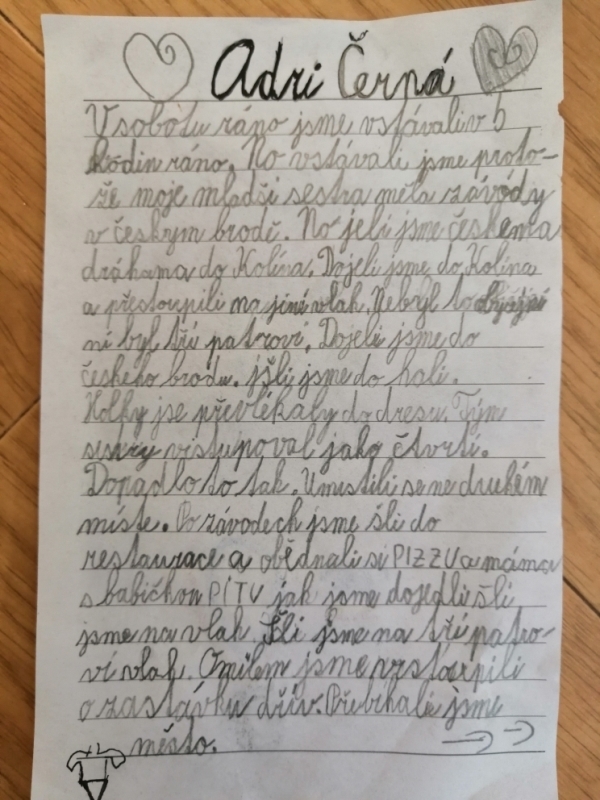 Adri Černá
V sobotu ráno jsme vstávali v 5
hodin ráno. No vstávali jsme proto-
že moje mladší sestra měla závódy
v českým brodě. No jeli jsme českema
dráhama do Kolína. Dojeli jsme do Kolína
a přestoupili na jiní vlak. Nebyl to obyčejní
ní byl tří patroví. Dojeli jsme do
českeho brodu. jšli jsme do hali.
Holky jse převlékaly do dresu. Tým
sestry vistupoval jako čtvrtí.
Dopadlo to tak. Umistili se ne druhém
míste. Po závodech jsme šli do
restaurace a obědnali si PIZZU a máma
s babičkou PITU jak jsme dojedli šli
jsme na vlak. Šli jsme na tří patro-
ví vlak. Omilem jsme vystoupili
o zastávku dřív. Přebíhali jsme
město.